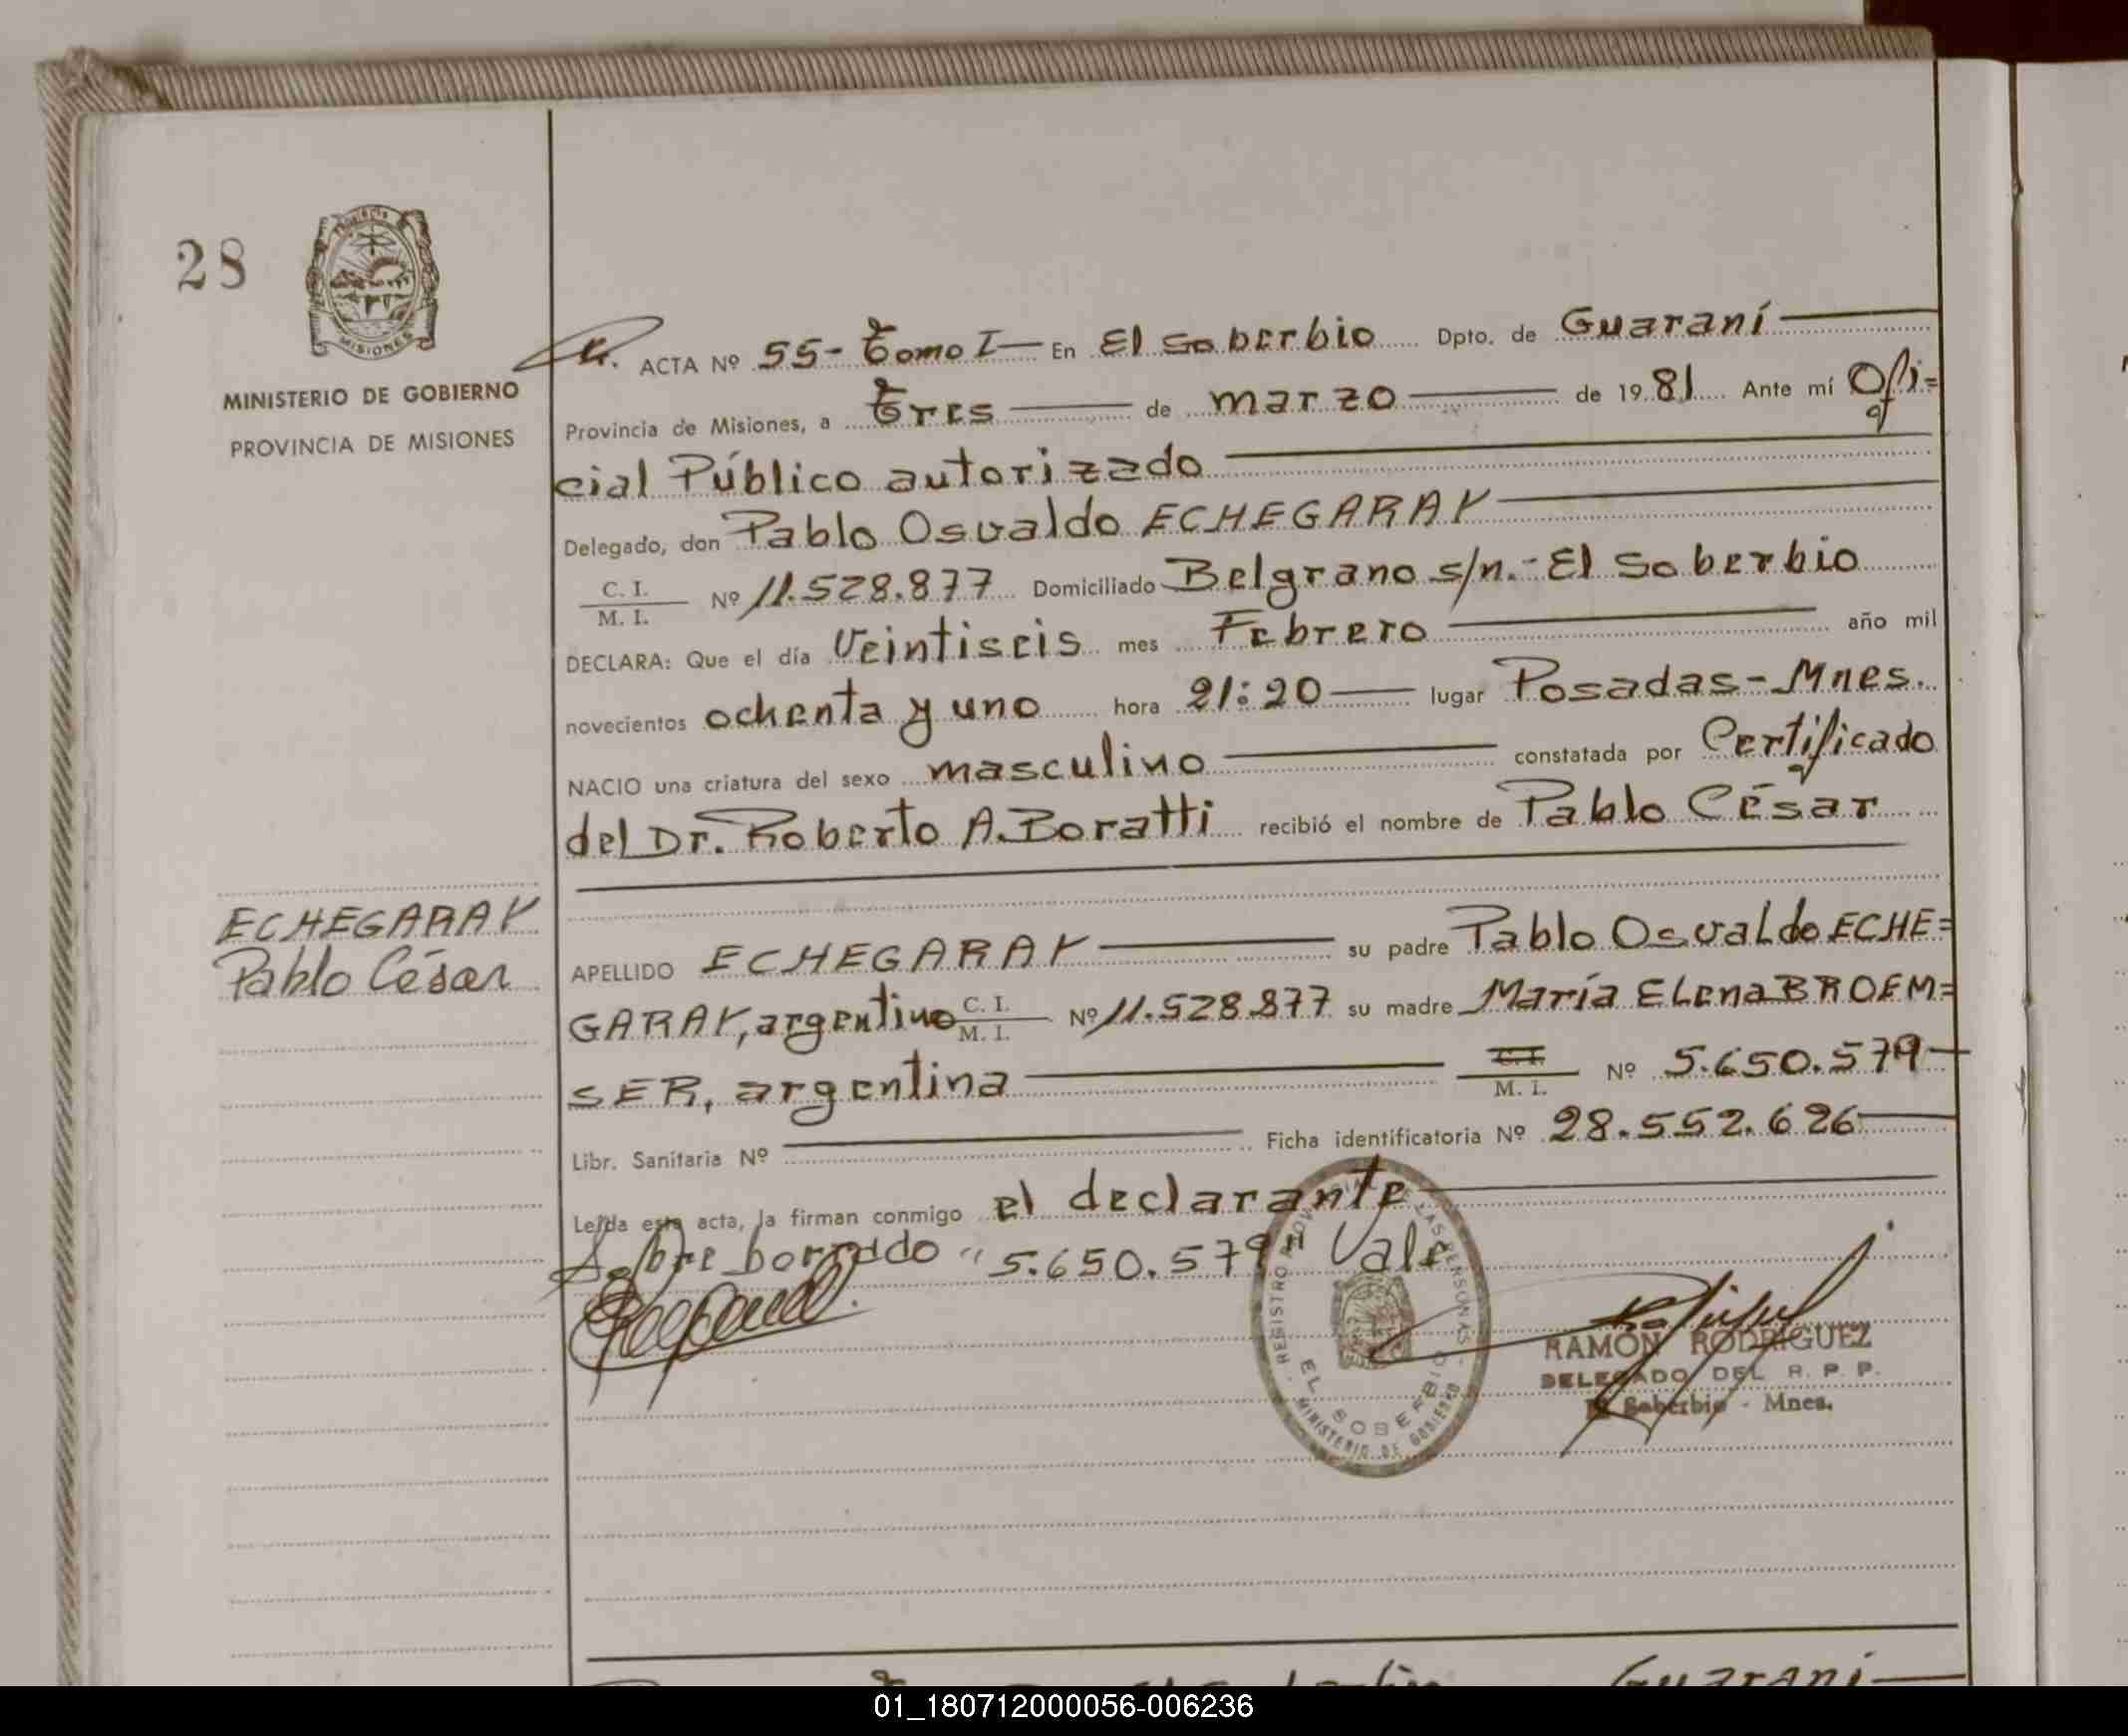 28
MISIONES
MINISTERIO DE GOBIERNO
PROVINCIA DE MISIONES
ACTA Nº 55- Tomo I En El Soberbio Dpto. de Guaraní
Provincia de Misiones, a Tres de marzo de 1981 Ante mí Ofi=
cial Público autorizado
Delegado, don Pablo Osvaldo ECHEGARAY
C. I.
M. I. Nº 11.528.877 Domiciliado Belgrano s/n.- El Soberbio
DECLARA: Que el día Veintiseis mes Febrero año mil
novecientos ochenta y uno hora 21:20 lugar Posadas-Mnes.
NACIO una criatura del sexo masculino constatada por Certificado
del Dr. Roberto A. Boratti recibió el nombre de Pablo César
ECHEGARAY
Pablo César
APELLIDO ECHEGARAY su padre Pablo Osvaldo ECHE=
GARAY, argentino C. I. M. I. Nº 11.528.877 su madre María Elena BROEM=
SER, argentina C. I. M. I. Nº 5.650.579
Libr. Sanitaria Nº Ficha identificatoria Nº 28.552.626
Leída esta acta, la firman conmigo el declarante
Sobre borrado "5.650.579" Vale
REGISTRO PROVINCIAL DE LAS PERSONAS
EL SOBERBIO
MINISTERIO DE GOBIERNO
RAMÓN RODRIGUEZ
DELEGADO DEL R. P. P.
El Soberbio - Mnes.
Guaraní
01_180712000056-006236